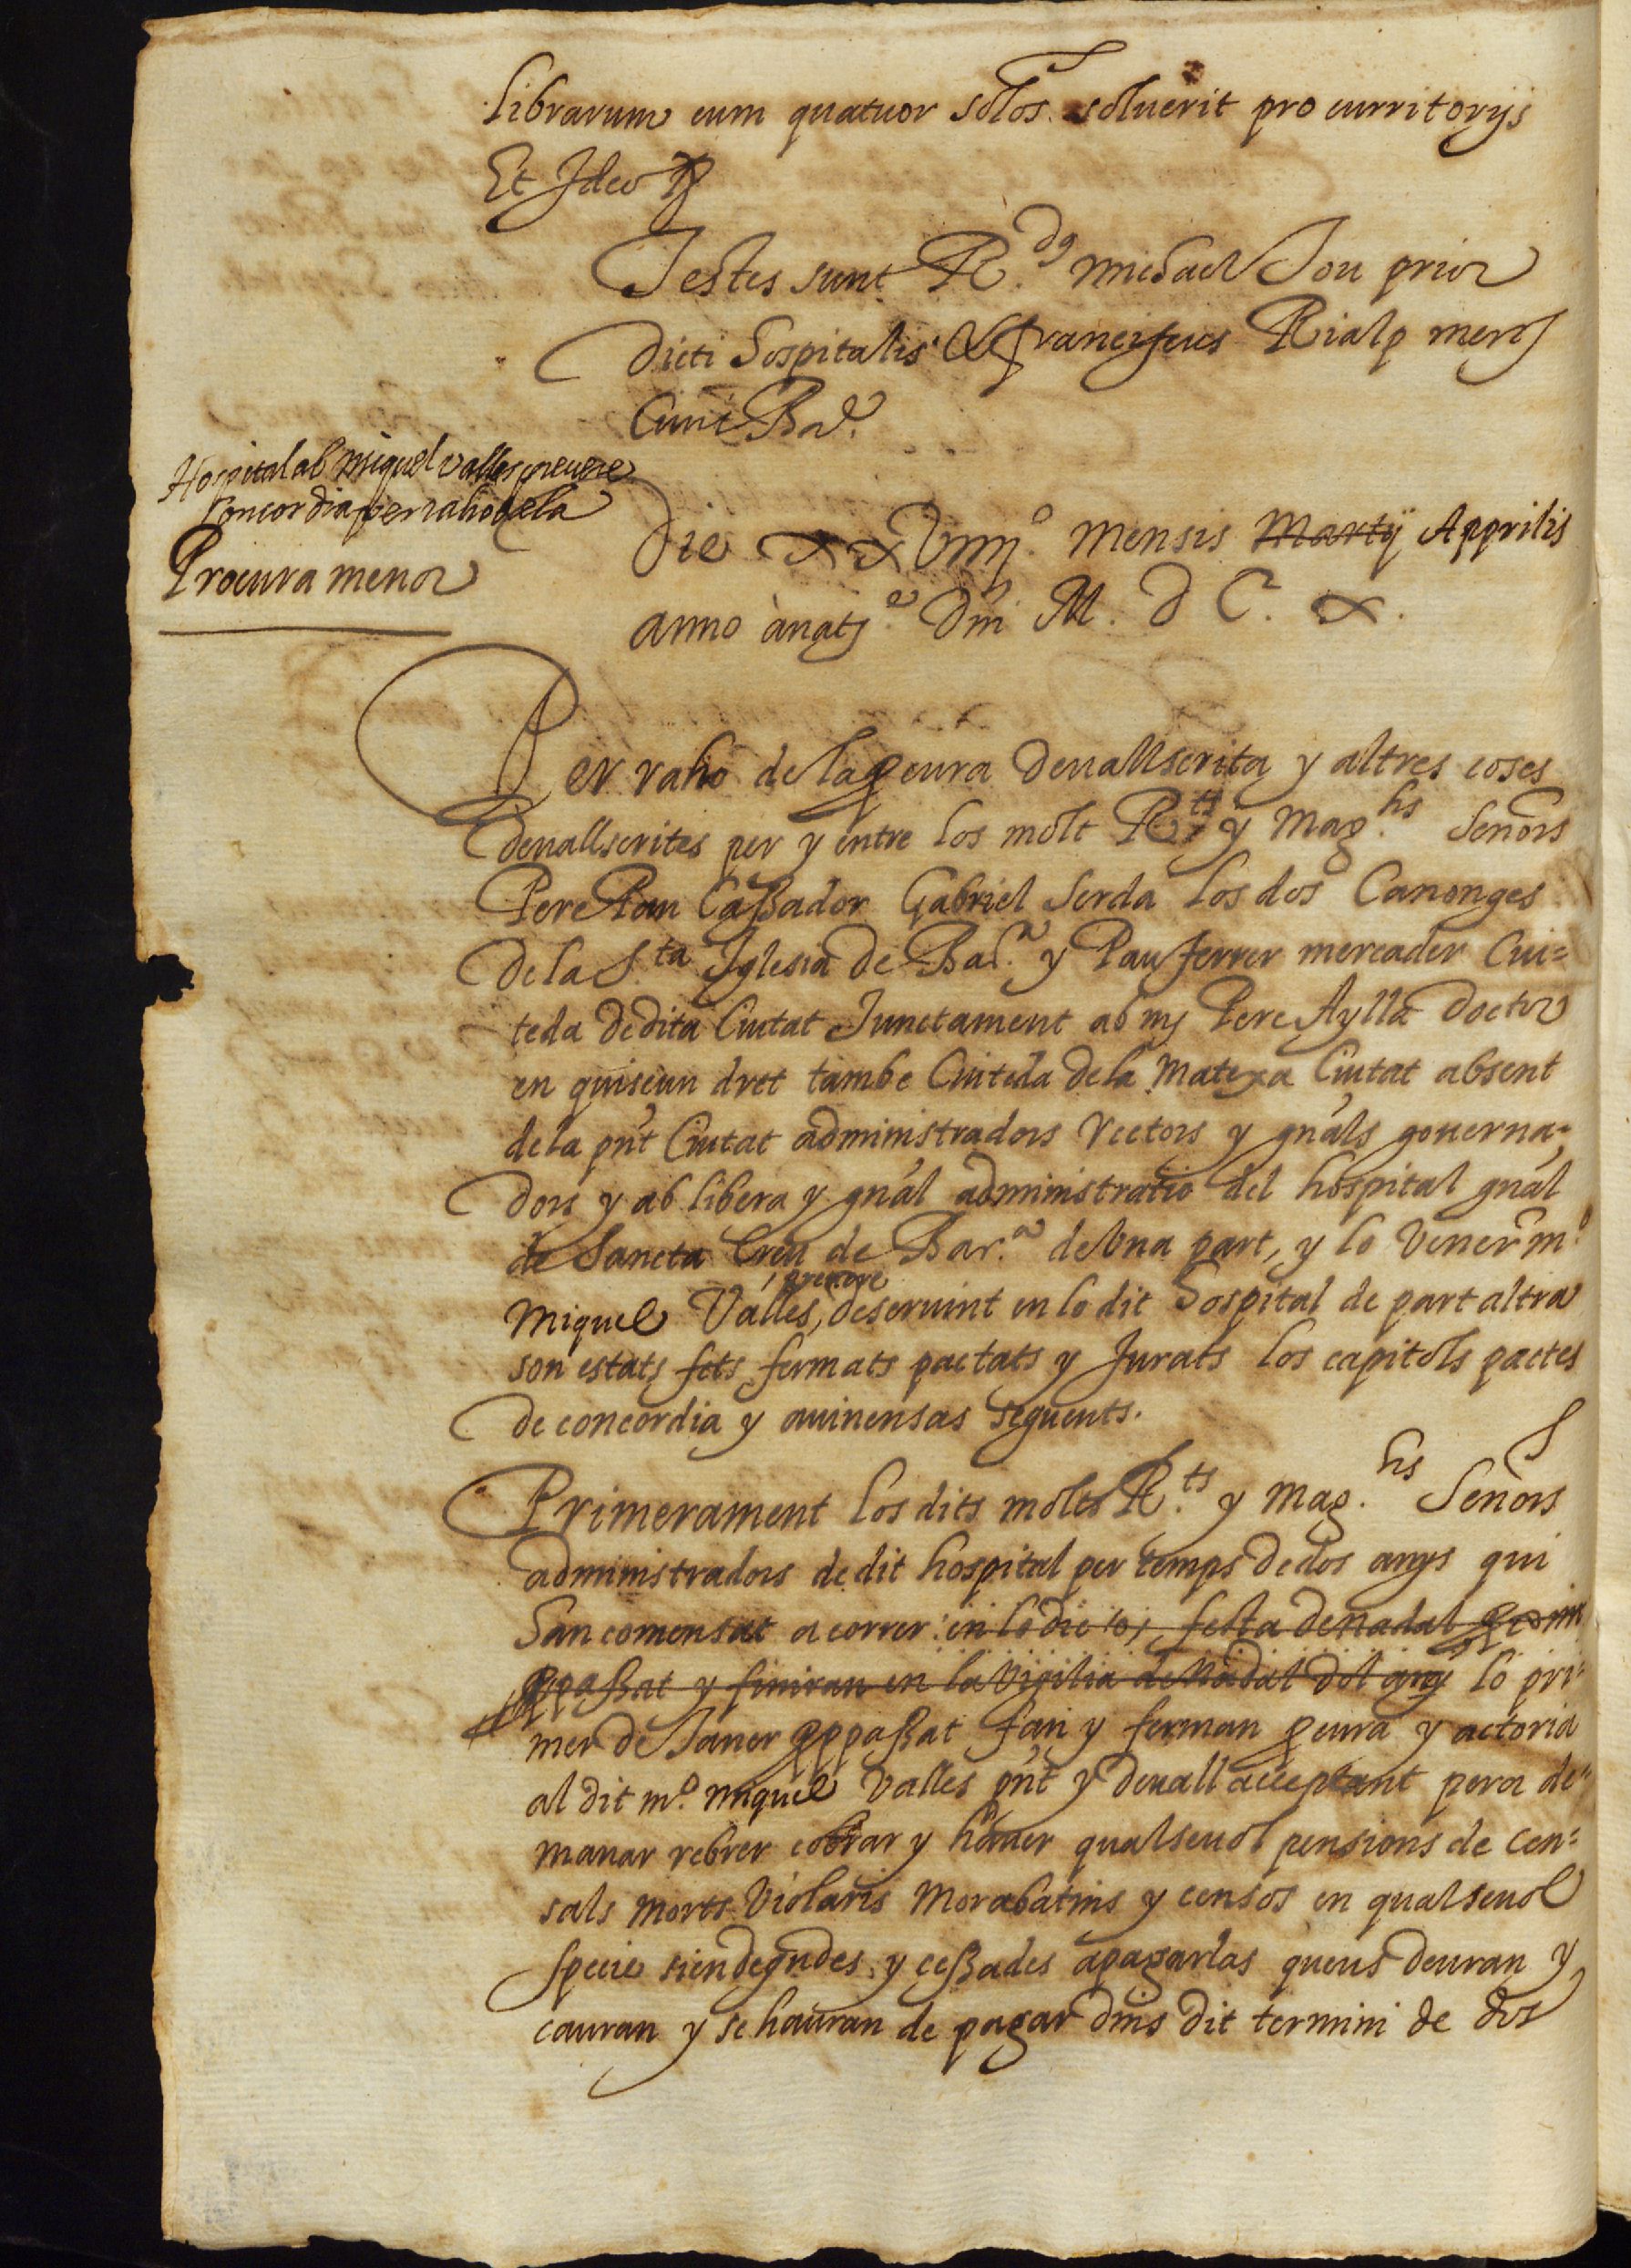 librarum cum quatuor solos. soluerit pro curritorijs
Et Ideo
Testes sunt R.dꝰ michael Jou prior
dicti hospitalis & franciscus Rialp merj
Ciuis Bar.
Hospital ab miquel valles preuere
Concordia per raho de la
Procura menor
Die xxviiij.º mensis Martij Apprilis
anno à natj.e Dm̃j M. D C. x.
Per raho de la ꝓcura deuallscrita y altres coses
deuallscrites per y entre los molt R.ts y Mag.chs Señors
Pere Pau Caßador Gabriel Serda los dos Canonges
de la S.ta Iglesia de Bar.a y Pau ferrer mercader Ciu=
teda de dita Ciutat Junctament ab mj Pere Aylla doctor
en quiscun dret tambe Ciuteda de la Matexa Ciutat absent
de la pñt Ciutat administradors rectors y gñals gouerna=
dors y ab libera y gñal administratio del hospital gñal
de Sancta Creu de Bar.a de vna part, y lo Vener m.º
Miquel Valles, preuere deseruint en lo dit hospital de part altra
son estats fets fermats pactats y Jurats los capitols pactes
de concordia y auinensas seguents.
Primerament los dits molts R.ts y Mag.chs Señors
administradors de dit hospital per temps de dos anys qui
han comensat a correr en lo die festa de nadal ꝓxim
ꝓpaßat y finiran en la Vigilia de Nadal del any lo pri=
mer de Janer ꝓppaßat fan y ferman ꝓcura y actoria
al dit m.º miquel Valles pñt y deuall acceptant pera de=
manar rebrer cobrar y hauer qualseuol pensions de cen=
sals morts Violaris Morabatins y censos en qualseuol
specie sien degudes y ceßades a pagarlas queus deuran y
cauran y se hauran de pagar dins dit termini de dos